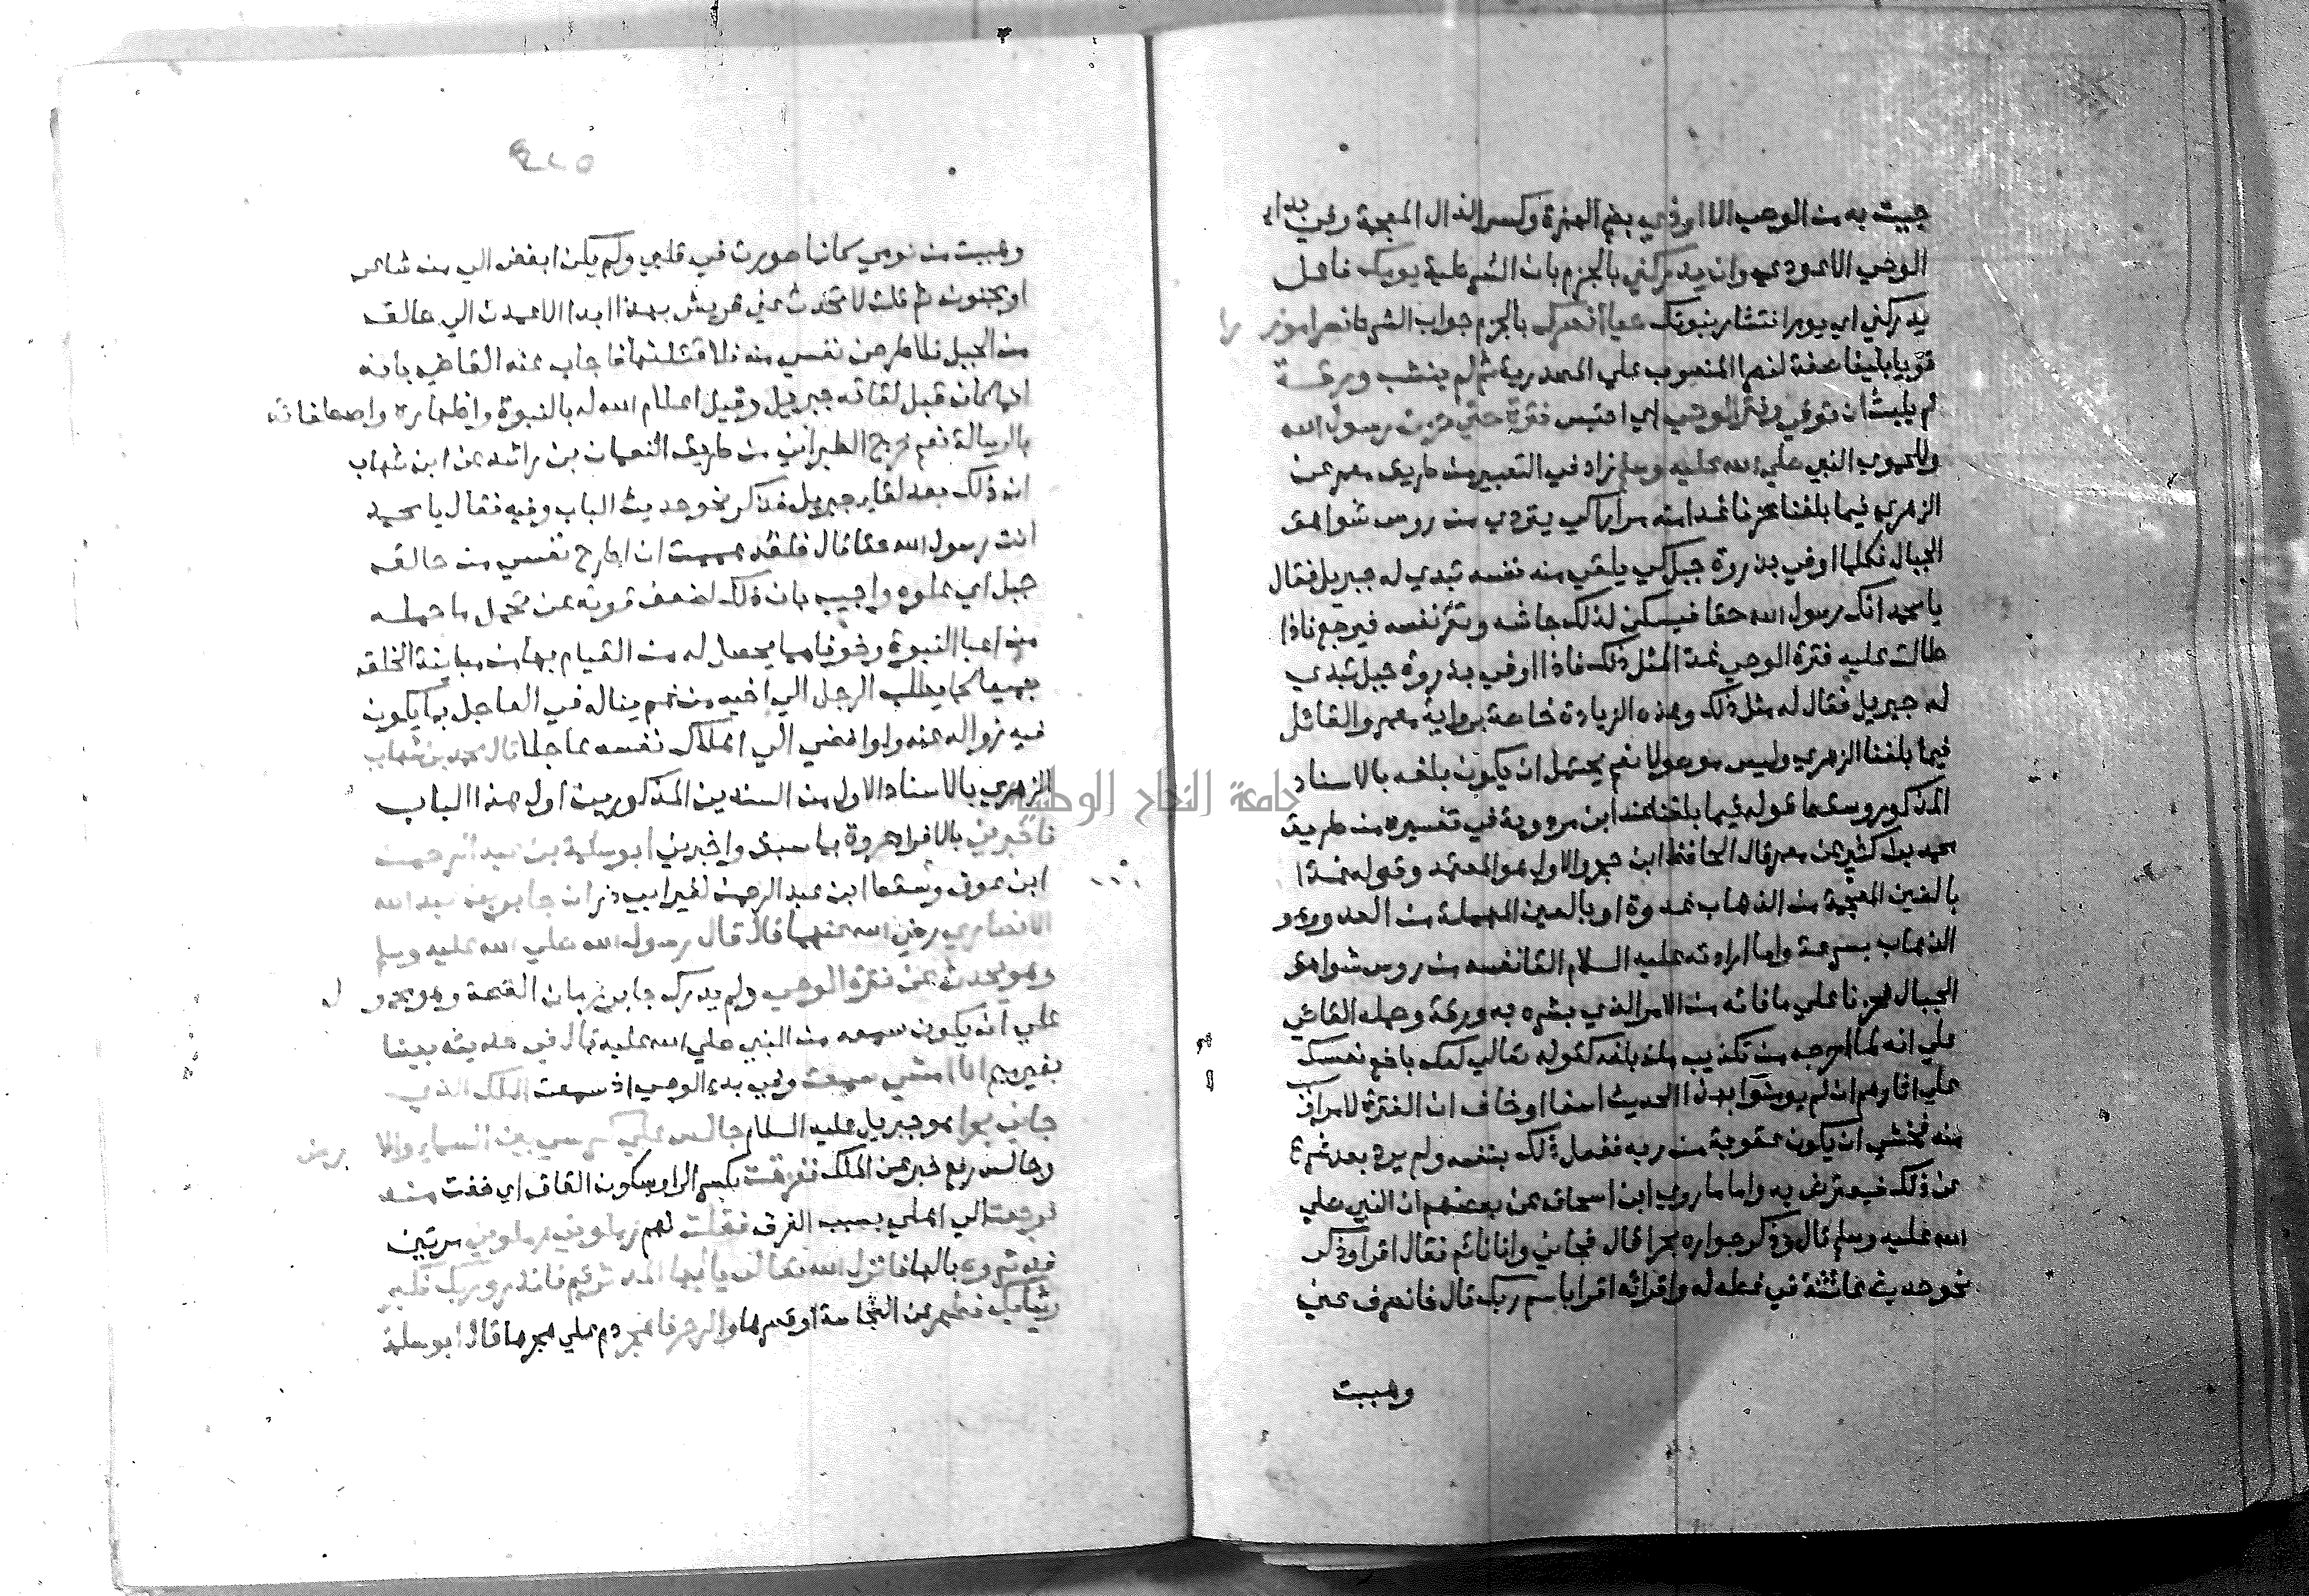 جيت به من الوحي الا اوذي بضم الهمزة وكسر الذال المعجمة وفي بدا
الوحي الا عودي وان يدركني بالجزم بان الشرطية يومك فاعل
يدركني اي يوم انتشار نبوتك حيا انصرك بالجزم جواب الشرط نصرا موزرا
قويا بليغا صفة لنصرا المنصوب علي المصدرية ثم لم ينشب ورقة
لم يلبث ان توفي وفتر الوحي اي احتبس فترة حتي حزن رسول الله
وللحموي النبي صلي الله عليه وسلم زاد في التعبير من طريق معمر عن
الزهري فيما بلغنا حزنا غدا منه مرارا كي يتردي من روس شواهق
الجبال فكلما اوفي بذروة جبل كي يلقي منه نفسه تبدي له جبريل فقال
يا محمد انك رسول الله حقا فيسكن لذلك جاشه وتقر نفسه فيرجع فاذا
طالت عليه فترة الوحي غدا لمثل ذلك فاذا اوفي بذروة جبل تبدي
له جبريل فقال له مثل ذلك وهذه الزيادة خاصة برواية معمر والقائل
فيما بلغنا الزهري وليس موصولا نعم يحتمل ان يكون بلغه بالاسناد
المذكور وسقط قوله فيما بلغنا عند ابن مردوية في تفسيره من طريق
محمد بن كثير عن معمر قال الحافظ ابن حجر والاول هو المعتمد وقوله غدا
بالغين المعجمة من الذهاب غدوة او بالعين المهملة من العدو وهو
الذهاب بسرعة واما ارادته عليه السلام القا نفسه من روس شواهق
الجبال فحزنا علي ما فاته من الامر الذي بشره به ورقة وحمله القاضي
علي انه لما اخرجه من تكذيب من بلغه كقوله تعالي لعلك باخع نفسك
علي اثارهم ان لم يومنوا بهذا الحديث اسفا او خاف ان الفترة لامر او سبب
منه فخشي ان يكون عقوبة من ربه ففعل ذلك بنفسه ولم يرد بعد شرع
عن ذلك فيعترض به واما ما روي ابن اسحاق عن بعضهم ان النبي صلي
الله عليه وسلم قال وذكر جواره بحرا قال فجاني وانا نائم فقال اقرا وذكر
نحو حديث عائشة في غطه له واقرائه اقرا باسم ربك قال فانصرف عني
وهببت
٤٢٥
وهببت من نومي كانما صورت في قلبي ولم يكن ابغض الي من شاعر
او مجنون ثم قلت لا تحدث عني قريش بهذا ابدا لاعمدن الي حالق
من الجبل فلاطرحن نفسي منه فلاقتلنها فاجاب عنه القاضي بانه
انما كان قبل لقائه جبريل وقبل اعلام الله له بالنبوة واظهاره واصطفائه
بالرسالة نعم خرج الطبراني من طريق النعمان بن راشد عن ابن شهاب
ان ذلك بعد لقاء جبريل فذكر نحو حديث الباب وفيه فقال يا محمد
انت رسول الله حقا قال فلقد هممت ان اطرح نفسي من حالق
جبل اي علوه واجيب بان ذلك لضعف قوته عن تحمل ما حمله
من اعبا النبوة وخوفا مما يحصل له من القيام بها من مباينة الخلق
جميعا كما يطلب الرجل الي اخيه من غم يناله في العاجل بما يكون
فيه زواله عنه ولو افضي الي اهلاك نفسه عاجلا قال محمد بن شهاب
الزهري بالاسناد الاول من السندين المذكورين اول هذا الباب
فاخبرني بالافراد عروة بما سبق واخبرني ابو سلمة بن عبد الرحمن
ابن عوف وسقط ابن عبد الرحمن لغير ابي ذر ان جابر بن عبد الله
الانصاري رضي الله عنهما قال قال رسول الله صلي الله عليه وسلم
وهو يحدث عن فترة الوحي ولم يدرك جابر زمان القصة وهو محمول
علي ان يكون سمعه من النبي صلي الله عليه قال في حديثه بينا
بغير ميم انا امشي سمعت وفي بدء الوحي اذ سمعت الملك الذي
جاني بحرا هو جبريل عليه السلام جالس علي كرسي بين السماء والارض
وجالس رفع خبر عن الملك ففرقت بكسر الرا وسكون القاف اي خفت منه
فرجعت الي اهلي بسبب الفرق فقلت لهم زملوني زملوني مرتين
فدثروه بالها فانزل الله تعالي يا ايها المدثر قم فانذر وربك فكبر
وثيابك فطهر عن النجاسة او قصرها والرجز فاهجر دم علي هجرها قال ابو سلمة
جامعة النجاح الوطنية